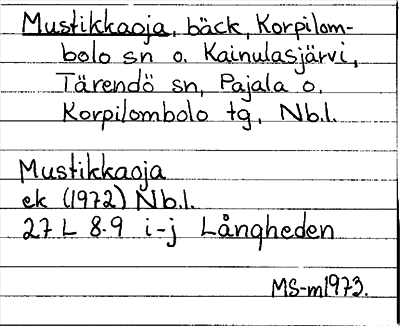 Mustikkaoja, bäck, Korpilom-
bolo sn o. Kainulasjärvi,
Tärendö sn, Pajala o.
Korpilombolo tg, Nb.l.
Mustikkaoja
ek (1972) Nb.l.
27 L 8-9 i-j Långheden
MS-m1973.